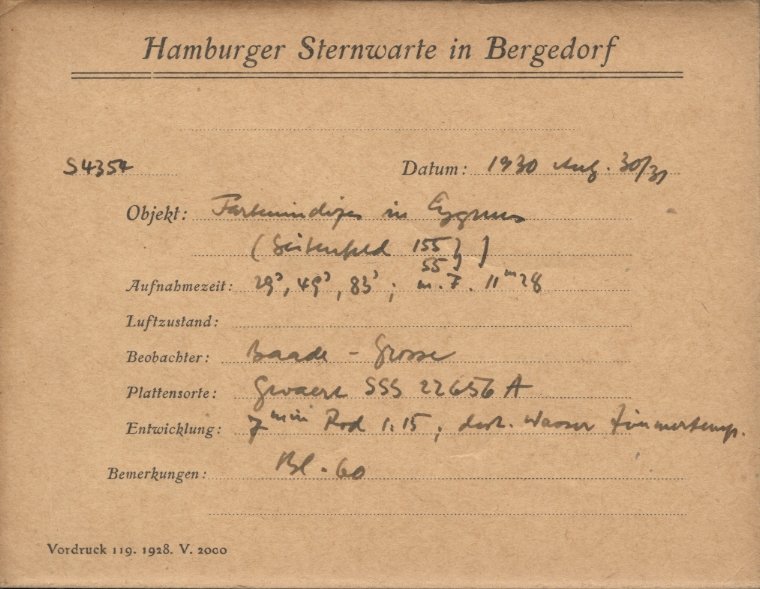 Hamburger Sternwarte in Bergedorf
S4354 Datum: 1930 Aug. 30/31
Objekt: Farbenindizes in Cygnus
(Seitenfeld 155)
55
Aufnahmezeit: 29ˢ, 49ˢ, 83ˢ; m. F. 11ᵐ28
Luftzustand:
Beobachter: Baade - Grosse
Plattensorte: Gevaert SSS 22656 A
Entwicklung: 7 min Rod 1:15; dest. Wasser Zimmertemp.
Bemerkungen: Bl. 60
Vordruck 119. 1928. V. 2000